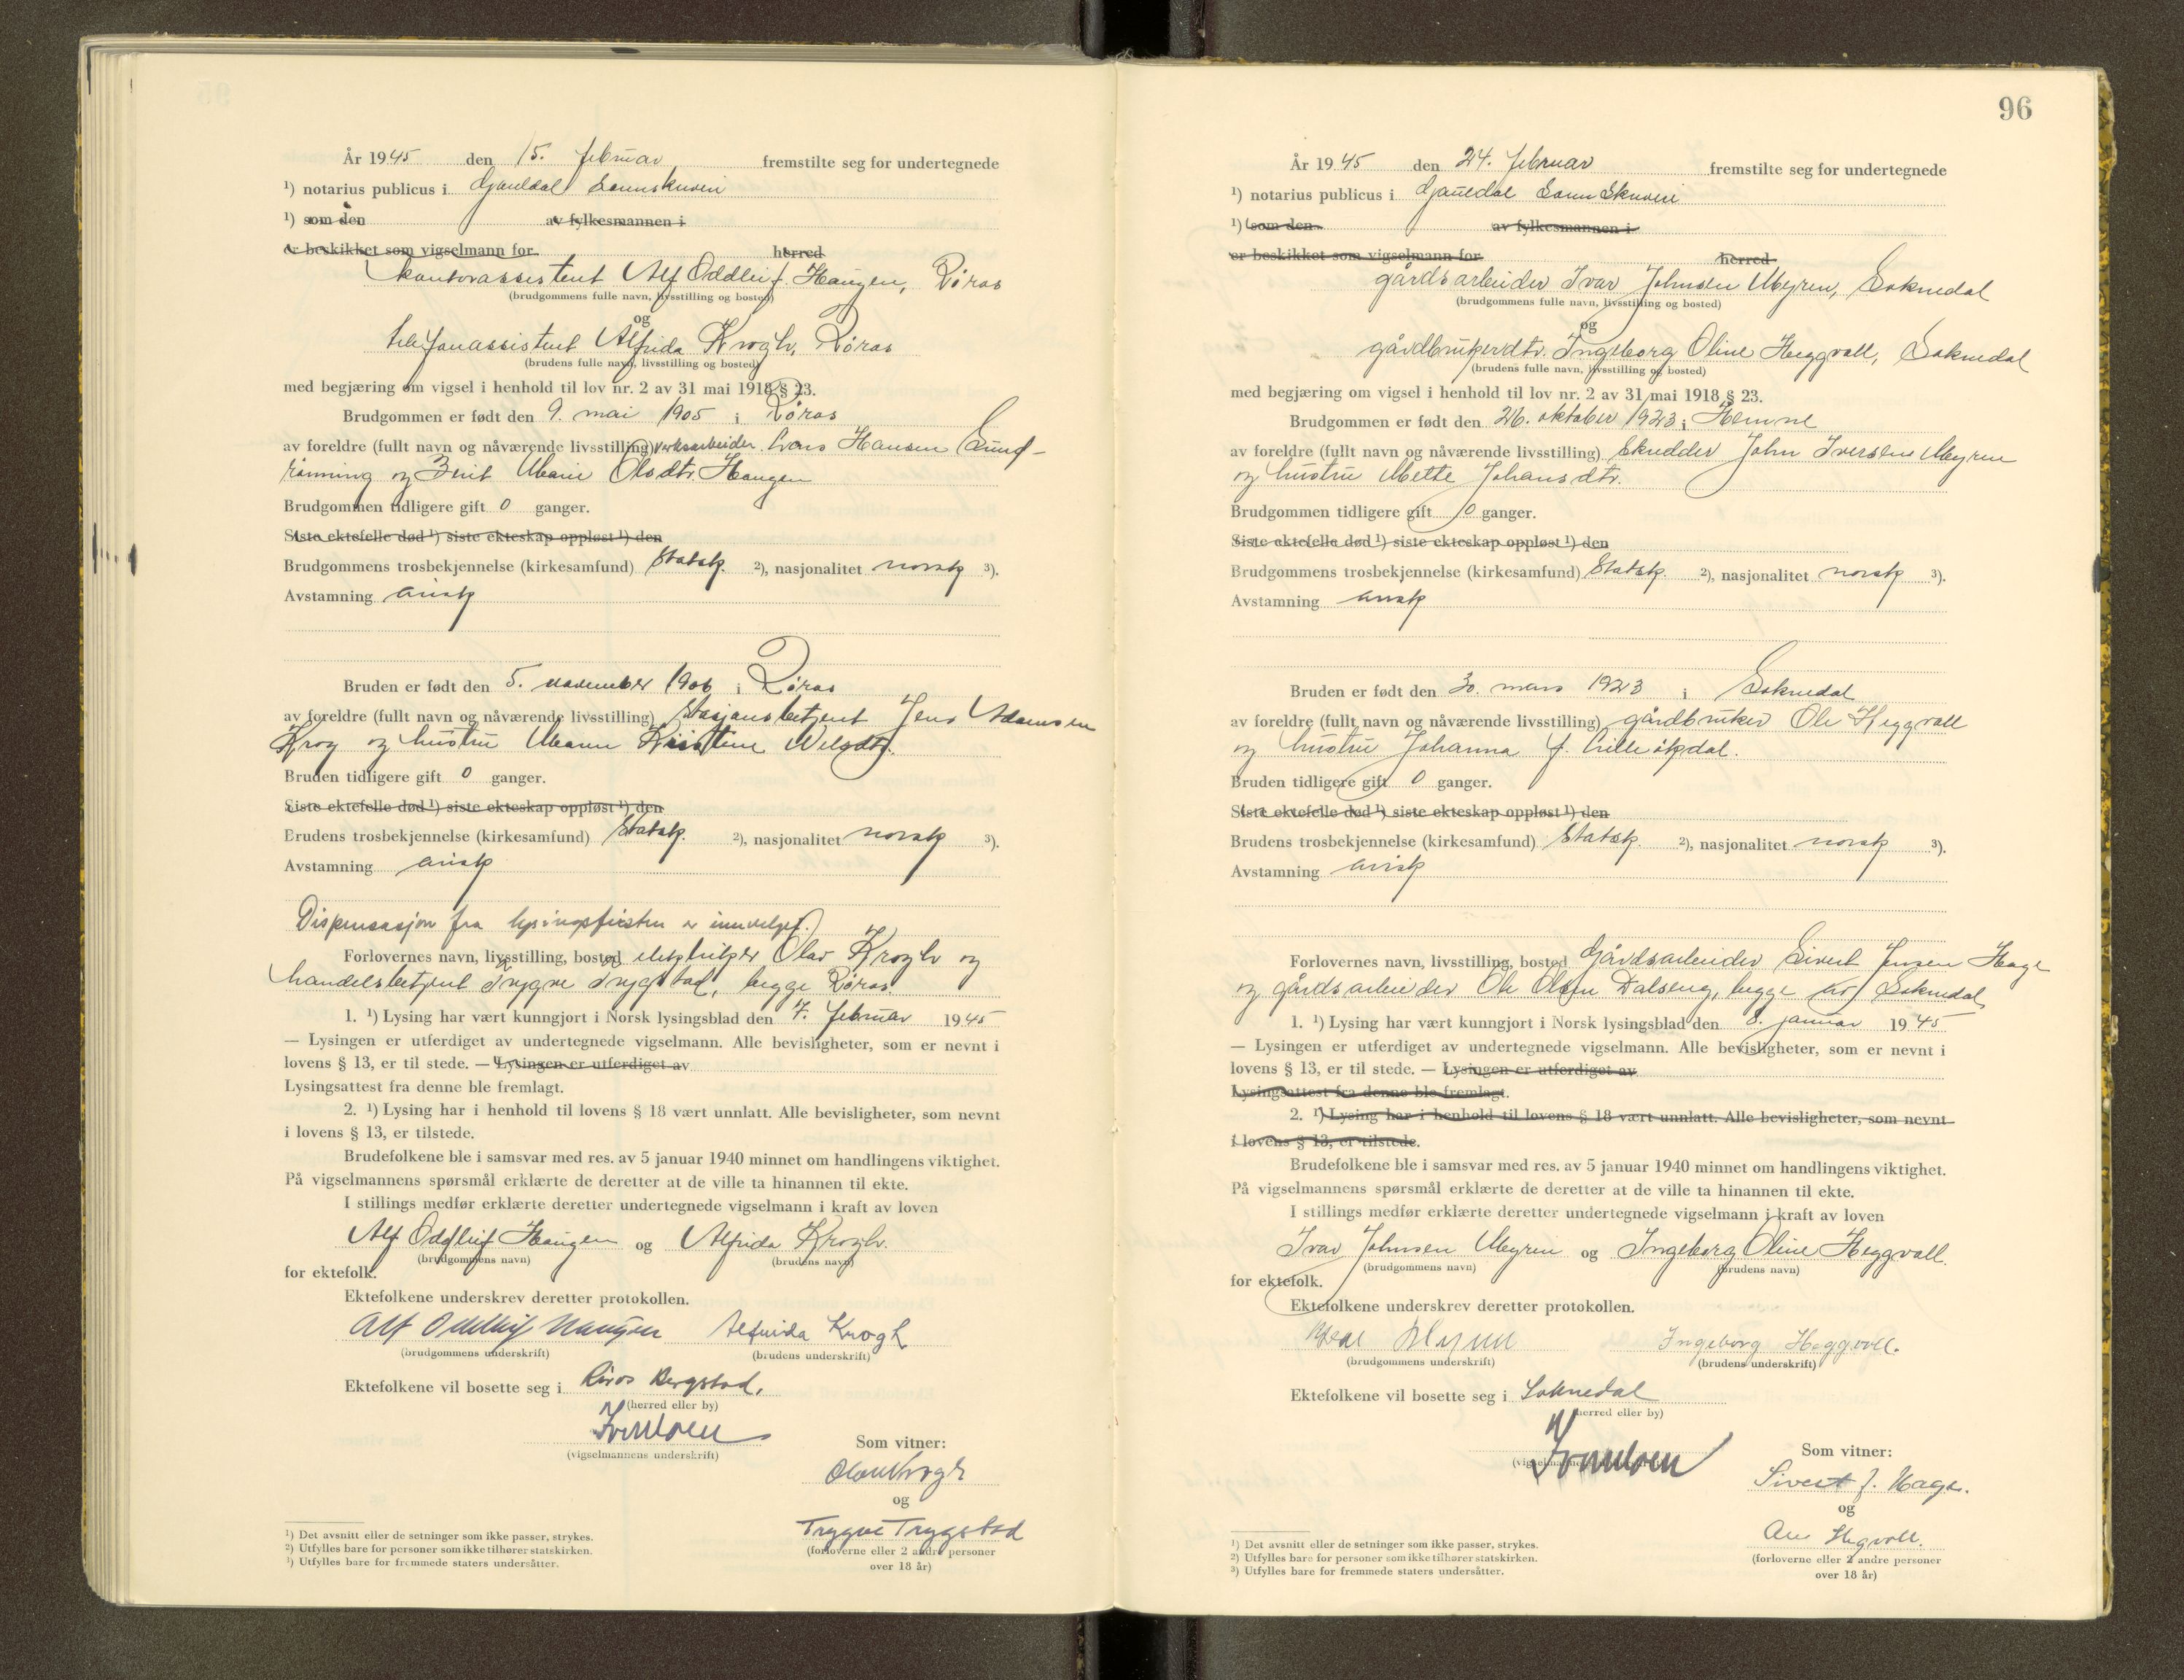 År 1945 den 15. februar fremstilte seg for undertegnede
¹) notarius publicus i Gauldal Sorenskriveri
¹) som den av fylkesmannen i
er beskikket som vigselmann for herred
kontorassistent Alf Oddleif Haugen, Røros
(brudgommens fulle navn, livsstilling og bosted)
og
telefonassistent Alfrida Krogh, Røros
(brudens fulle navn, livsstilling og bosted)
med begjæring om vigsel i henhold til lov nr. 2 av 31 mai 1918 § 23.
Brudgommen er født den 9. mai 1905 i Røros
av foreldre (fullt navn og nåværende livsstilling) verksarbeider Lars Hansen Sund-
rønning og Berit Marie Olsdtr. Haugen
Brudgommen tidligere gift 0 ganger.
Siste ektefelle død ¹) siste ekteskap oppløst ¹) den
Brudgommens trosbekjennelse (kirkesamfund) Statsk. ²), nasjonalitet norsk ³).
Avstamning arisk
Bruden er født den 5. november 1906 i Røros
av foreldre (fullt navn og nåværende livsstilling) Stasjonsbetjent Jens Adamsen
Krog og hustru Maren Kristine Nilsdtr.
Bruden tidligere gift 0 ganger.
Siste ektefelle død ¹) siste ekteskap oppløst ¹) den
Brudens trosbekjennelse (kirkesamfund) Statsk. ²), nasjonalitet norsk ³).
Avstamning arisk
Dispensasjon fra lysingsfristen er innvilget.
Forlovernes navn, livsstilling, bosted Olav Krogh og
handelsbetjent Trygve Trygstad, begge Røros.
1. ¹) Lysing har vært kunngjort i Norsk lysingsblad den 7. februar 1945
— Lysingen er utferdiget av undertegnede vigselmann. Alle bevisligheter, som er nevnt i
lovens § 13, er til stede. — Lysingen er utferdiget av
Lysingsattest fra denne ble fremlagt.
2. ¹) Lysing har i henhold til lovens § 18 vært unnlatt. Alle bevisligheter, som nevnt
i lovens § 13, er tilstede.
Brudefolkene ble i samsvar med res. av 5 januar 1940 minnet om handlingens viktighet.
På vigselmannens spørsmål erklærte de deretter at de ville ta hinannen til ekte.
I stillings medfør erklærte deretter undertegnede vigselmann i kraft av loven
Alf Oddleif Haugen og Alfrida Krogh.
(brudgommens navn) (brudens navn)
for ektefolk.
Ektefolkene underskrev deretter protokollen.
Alf Oddleif Haugen Alfrida Krogh
(brudgommens underskrift) (brudens underskrift)
Ektefolkene vil bosette seg i Røros Bergstad.
(herred eller by)
(vigselmannens underskrift)
Som vitner:
Olav Krogh
og
Trygve Trygstad
(forloverne eller 2 andre personer
over 18 år)
¹) Det avsnitt eller de setninger som ikke passer, strykes.
²) Utfylles bare for personer som ikke tilhører statskirken.
³) Utfylles bare for fremmede staters undersåtter.
96
År 1945 den 24. februar fremstilte seg for undertegnede
¹) notarius publicus i Gauldal Sorenskriveri
¹) som den av fylkesmannen i
er beskikket som vigselmann for herred
gårdsarbeider Ivar Johnsen Myren, Soknedal
(brudgommens fulle navn, livsstilling og bosted)
og
gårdbrukerdtr. Ingeborg Oline Heggvoll, Soknedal
(brudens fulle navn, livsstilling og bosted)
med begjæring om vigsel i henhold til lov nr. 2 av 31 mai 1918 § 23.
Brudgommen er født den 26. oktober 1923 i Hemne
av foreldre (fullt navn og nåværende livsstilling) Skredder John Iversen Myren
og hustru Mette Johansdtr.
Brudgommen tidligere gift 0 ganger.
Siste ektefelle død ¹) siste ekteskap oppløst ¹) den
Brudgommens trosbekjennelse (kirkesamfund) Statsk. ²), nasjonalitet norsk ³).
Avstamning arisk
Bruden er født den 30. mars 1923 i Soknedal
av foreldre (fullt navn og nåværende livsstilling) gårdbruker Ole Heggvoll
og hustru Johanna f. Lilleøkdal.
Bruden tidligere gift 0 ganger.
Siste ektefelle død ¹) siste ekteskap oppløst ¹) den
Brudens trosbekjennelse (kirkesamfund) Statsk. ²), nasjonalitet norsk ³).
Avstamning arisk
Forlovernes navn, livsstilling, bosted Gårdsarbeider Sivert Jensen Hage
og gårdsarbeider Ole Olsen Dalseng, begge av Soknedal
1. ¹) Lysing har vært kunngjort i Norsk lysingsblad den 8. januar 1945
— Lysingen er utferdiget av undertegnede vigselmann. Alle bevisligheter, som er nevnt i
lovens § 13, er til stede. — Lysingen er utferdiget av
Lysingsattest fra denne ble fremlagt.
2. ¹) Lysing har i henhold til lovens § 18 vært unnlatt. Alle bevisligheter, som nevnt
i lovens § 13, er tilstede.
Brudefolkene ble i samsvar med res. av 5 januar 1940 minnet om handlingens viktighet.
På vigselmannens spørsmål erklærte de deretter at de ville ta hinannen til ekte.
I stillings medfør erklærte deretter undertegnede vigselmann i kraft av loven
Ivar Johnsen Myren og Ingeborg Oline Heggvoll.
(brudgommens navn) (brudens navn)
for ektefolk.
Ektefolkene underskrev deretter protokollen.
Ivar Myren Ingeborg Heggvoll.
(brudgommens underskrift) (brudens underskrift)
Ektefolkene vil bosette seg i Soknedal
(herred eller by)
Som vitner:
Sivert J. Hage.
og
Heggvoll.
(forloverne eller 2 andre personer
over 18 år)
¹) Det avsnitt eller de setninger som ikke passer, strykes.
²) Utfylles bare for personer som ikke tilhører statskirken.
³) Utfylles bare for fremmede staters undersåtter.